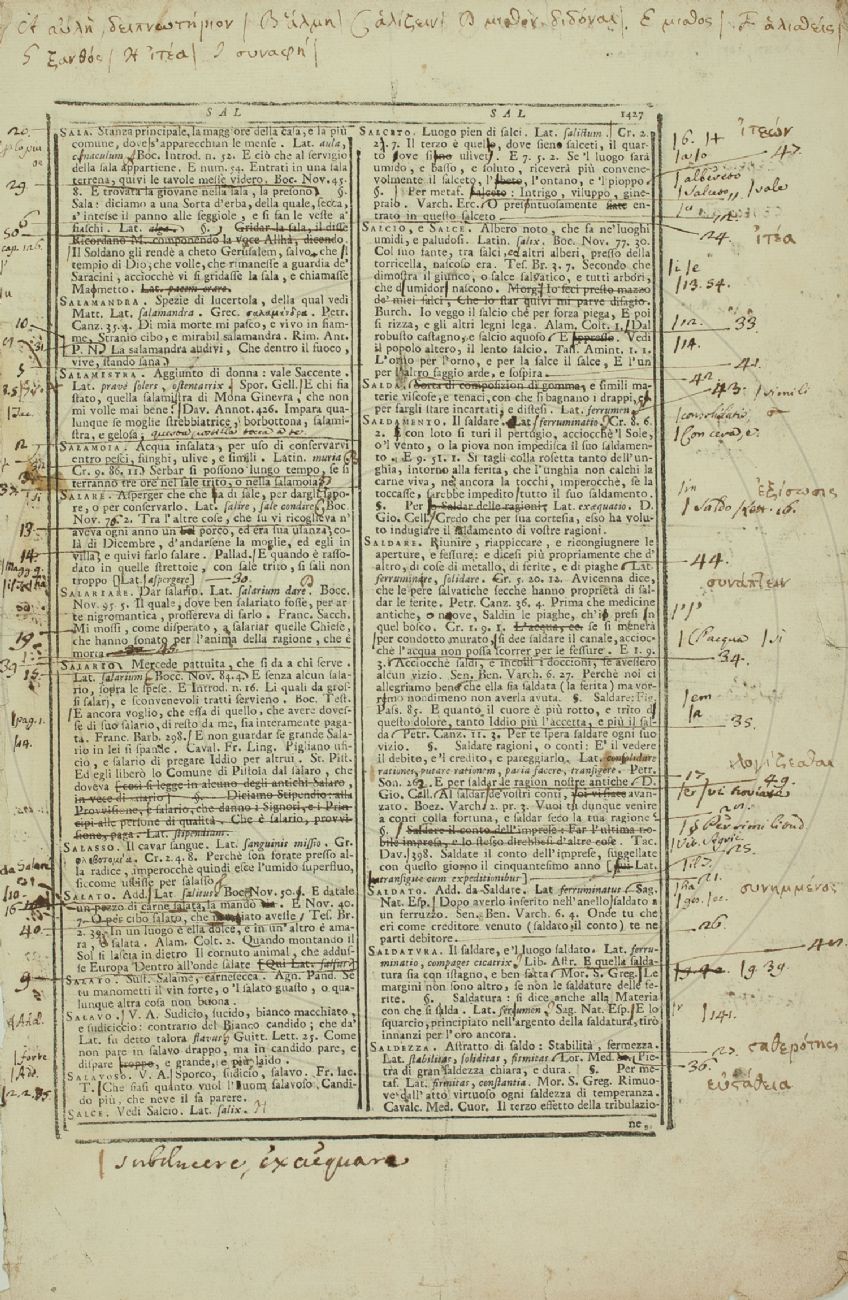 A αὐλή, δειπνωτήριον / B ἅλμη / C ἁλίζειν / D μισθὸν διδόναι. E μισθος / F ἁλισθείς /
G ξανθός / H ἰτέα / I συναφή /
SAL SAL 1427
SALA. Stanza principale, la maggiore della casa, e la più
comune, dove s'apparecchian le mense. Lat. aula,
cœnaculum. Boc. Introd. n. 52. E ciò che al servigio
della sala appartiene. E num. 54. Entrati in una sala
terrena, quivi le tavole messe videro. Boc. Nov. 45.
8. E trovata la giovane nella sala, la presono. §.
Sala: diciamo a una Sorta d'erba, della quale, secca,
s'intesse il panno alle seggiole, e si fan le veste a'
fiaschi. Lat. alga. §. Gridar la sala, il disse
Ricordano M. componendo la voce Allhà, dicendo.
Il Soldano gli rendè a cheto Gerusalem, salvo, che 'l
tempio di Dio; che volle, che rimanesse a guardia de'
Saracini, acciocchè vi si gridasse la sala, e chiamasse
Maometto.
SALAMANDRA. Spezie di lucertola, della qual vedi
Matt. Lat. salamandra. Grec. σαλαμάνδρα. Petr.
Canz. 35. 4. Di mia morte mi pasco, e vivo in fiam-
me, Stranio cibo, e mirabil salamandra. Rim. Ant.
P. N. La salamandra audivi, Che dentro il fuoco,
vive, stando sana.
SALAMISTRA. Aggiunto di donna: vale Saccente.
Lat. pravè solers, ostentatrix. Spor. Gell. E chi sia
stato, quella salamistra di Mona Ginevra, che non
mi volle mai bene. Dav. Annot. 426. Impara qua-
lunque se moglie strebbiatrice, borbottona, salami-
stra, e gelosa,
SALAMOIA. Acqua insalata, per uso di conservarvi
entro pesci, funghi, ulive, e simili. Latin. muria.
Cr. 9. 86. 11. Serbar si possono lungo tempo, se si
terranno tre ore nel sale trito, o nella salamoia.
SALARE. Asperger che che sia di sale, per dargli sapo-
re, o per conservarlo. Lat. salire, sale condire. Boc.
Nov. 76. 2. Tra l'altre cose, che su vi ricoglieva n'
aveva ogni anno un bel porco, ed era sua usanza, co-
là di Dicembre, d'andarsene la moglie, ed egli in
villa, e quivi farlo salare. Pallad. E quando è rasso-
dato in quelle strettoie, con sale trito, si sali non
troppo [Lat. aspergere]
SALARIARE. Dar salario. Lat. salarium dare. Bocc.
Nov. 95. 5. Il quale, dove ben salariato fosse, per ar
te nigromantica, profferева di farlo. Franc. Sacch.
Mi mossi, come disperato, a salariar quelle Chiese,
che hanno sonato per l'anima della ragione, che è
morta
SALARIO. Mercede pattuita, che si da a chi serve.
Lat. salarium. Bocc. Nov. 84. 4. E senza alcun sala-
rio, sopra le spese. E Introd. n. 16. Li quali da gros-
si salarj, e sconvenevoli tratti servieno. Boc. Test.
E ancora voglio, che essa di quello, che avere doves-
se di suo salario, di resto da me, sia interamente paga-
ta. Franc. Barb. 298. E non guardar se grande Sala-
rio in lei si spande. Caval. Fr. Ling. Pigliano ufi-
cio, e salario di pregare Iddio per altrui. St. Pist.
Ed egli liberò lo Comune di Pistoia dal salario, che
doveva [così si legge in alcuno degli antichi Salaro,
in vece di salario] §. Diciamo Stipendio: alla
Provvisione, e salario, che danno i Signori, e i Prin-
cipi alle persone di qualità. Che è salario, provvi-
sione, paga. Lat. stipendium.
SALASSO. Il cavar sangue. Lat. sanguinis missio. Gr.
φλεβοτομία. Cr. 2. 4. 8. Perchè son forate presso al-
la radice, imperocchè quindi esce l'umido superfluo,
siccome uscisse per salasso.
SALATO. Add. Lat. salitus. Boc. Nov. 50. 9. E datale
un pezzo di carne salata, la mandò via. E Nov. 40.
7. O per cibo salato, che mangiato avesse. Tes. Br.
2. 39. In un luogo è ella dolce, e in un'altro è ama-
ra, o salata. Alam. Colt. 2. Quando montando il
Sol si lascia dietro Il cornuto animal, che addus-
se Europa Dentro all'onde salate [Qui Lat. salsus]
SALATO. Sust. Salame, carnesecca. Agn. Pand. Se
tu manometti il vin forte, o 'l salato guasto, o qua-
lunque altra cosa non buona.
SALAVO. V. A. Sudicio, sucido, bianco macchiato,
e sudiciccio: contrario del Bianco candido; che da'
Lat. fu detto talora flavus. Guitt. Lett. 25. Come
non pare in salavo drappo, ma in candido pare, e
dispare troppo, e grande, e più laido.
SALAVOSO. V. A. Sporco, sudicio, salavo. Fr. Iac.
T. Che fiasi quanto vuol l'huom salavoso, Candi-
do più, che neve il fa parere.
SALCE. Vedi Salcio. Lat. salix. H
SALCETO. Luogo pien di salci. Lat. salictum. Cr. 2.
22. 7. Il terzo è quello, dove sieno salceti, il quar-
to dove sieno uliveti. E 7. 5. 2. Se 'l luogo sarà
umido, e basso, e soluto, riceverà più convene-
volmente il salceto, l'ontano, e 'l pioppo.
§. Per metaf. Salceto: Intrigo, viluppo, gine-
praio. Varch. Erc. O presuntuosamente siate en-
trato in questo salceto
SALCIO, E SALCE. Albero noto, che fa ne'luoghi
umidi, e paludosi. Latin. salix. Boc. Nov. 77. 30.
Col suo fante, tra salci, ed altri alberi, presso della
torricella, nascoso era. Tes. Br. 3. 7. Secondo che
dimostra il giunco, o salce salvatico, e tutti arbori,
che d'umidor nascono. Morg. Io feci presso mazzo
de' miei salci, Che lo star quivi mi parve disagio.
Burch. Io veggo il salcio che per forza piega, E poi
si rizza, e gli altri legni lega. Alam. Colt. 1. Dal
robusto castagno, e salcio aquoso. E appresso. Vedi
il popolo altero, il lento salcio. Tass. Amint. 1. 1.
L'orno per l'orno, e per la salce il salce, E l'un
per l'altro faggio arde, e sospira.
SALDA. Sorta di composizion di gomme, e simili ma-
terie viscose, e tenaci, con che si bagnano i drappi,
per fargli stare incartati, e distesi. Lat. ferrumen.
SALDAMENTO. Il saldare. Lat. ferruminatio. Cr. 8. 6.
2. E con loto si turi il pertugio, acciocchè 'l Sole,
o 'l vento, o la piova non impedisca il suo saldamen-
to. E 9. 51. 1. Si tagli colla rosetta dentro dell'un-
ghia, intorno alla ferita, che l'unghia non calchi la
carne viva, nè ancora la tocchi, imperocchè, se la
toccasse, sarebbe impedito tutto il suo saldamento.
§. Per lo Saldar delle ragioni, Lat. exæquatio. D.
Gio. Cell. Credo che per sua cortesia, esso ha volu-
to indugiare il saldamento di vostre ragioni.
SALDARE. Riunire, riappiccare, e ricongiugnere le
aperture, e fessure: e dicesi più propriamente che d'
altro, di cose di metallo, di ferite, e di piaghe. Lat.
ferruminare, solidare. Cr. 5. 20. 12. Avicenna dice,
che le pere salvatiche secche hanno proprietà di sal-
dar le ferite. Petr. Canz. 36. 4. Prima che medicine
antiche, o nuove, Saldin le piaghe, ch'i presi in
quel bosco. Cr. 1. 9. 1. L'acqua, ec. se si menerà
per condotto murato, si dee saldare il canale, accioc-
chè l'acqua non possa scorrer per le fessure. E 1. 9.
3. Acciocchè saldi, e incolli i doccioni, se avessero
alcun vizio. Sen. Ben. Varch. 6. 27. Perchè noi ci
allegriamo bene che ella sia saldata (la ferita) ma vor-
remo nondimeno non averla avuta. §. Saldare: Fig.
Pass. 85. E quanto il cuore è più rotto, e trito di
questo dolore, tanto Iddio più l'accetta, e più il sal-
da. Petr. Canz. 11. 3. Per te spera saldare ogni suo
vizio. §. Saldare ragioni, o conti: E' il vedere
il debito, e 'l credito, e pareggiarlo. Lat. consolidare
rationes, putare rationem, paria facere, transigere. Petr.
Son. 262. E per saldar le ragion nostre antiche. D.
Gio. Cell. Al saldar de'vostri conti, voi vissete avan-
zato. Boez. Varch. 2. pr. 3. Vuoi tu dunque venire
a conti colla fortuna, e saldar seco la tua ragione?
§. Saldare il conto dell'imprese: Far l'ultima no-
bile impresa, e lo stesso direbbesi d'altre cose. Tac.
Dav. 398. Saldate il conto dell'imprese, suggellate
con questo giorno il cinquantesimo anno [qui Lat.
transigite cum expeditionibus]
SALDATO. Add. da Saldare. Lat. ferruminatus. Sag.
Nat. Esp. Dopo averlo inserito nell'anello saldato a
un ferruzzo. Sen. Ben. Varch. 6. 4. Onde tu che
eri come creditore venuto (saldato il conto) te ne
parti debitore.
SALDATURA. Il saldare, e 'l luogo saldato. Lat. ferru-
minatio, compages cicatrix. Lib. Astr. E quella salda-
tura sia con istagno, e ben fatta. Mor. S. Greg. Le
margini non sono altro, se non le saldature delle fe-
rite. §. Saldatura: si dice anche alla Materia
con che si salda. Lat. ferrumen. Sag. Nat. Esp. E lo
squarcio, principiato nell'argento della saldatura, tirò
innanzi per l'oro ancora.
SALDEZZA. Astratto di saldo: Stabilità, fermezza.
Lat. stabilitas, soliditas, firmitas. Lor. Med. Pie-
tra di gran saldezza chiara, e dura. §. Per me-
taf. Lat. firmitas, constantia. Mor. S. Greg. Rimuo-
ve dall'atto virtuoso ogni saldezza di temperanza.
Cavalc. Med. Cuor. Il terzo effetto della tribulazio-
ne,
ἰτεών
47.
24.
ἰτέα
13. 54.
33
41.
42.
43.
/simili
ἐξίσωσις
44.
συνάπτειν
/l'acqua /si
34.
35.
λογίζεσθαι
49.
25.
21.
συνημμένος
26.
9. 39.
141.
27. σταθερότης
36. εὐστάθεια
20.
29
10
12
13
14
19
15
40
9
subducere, exaequare